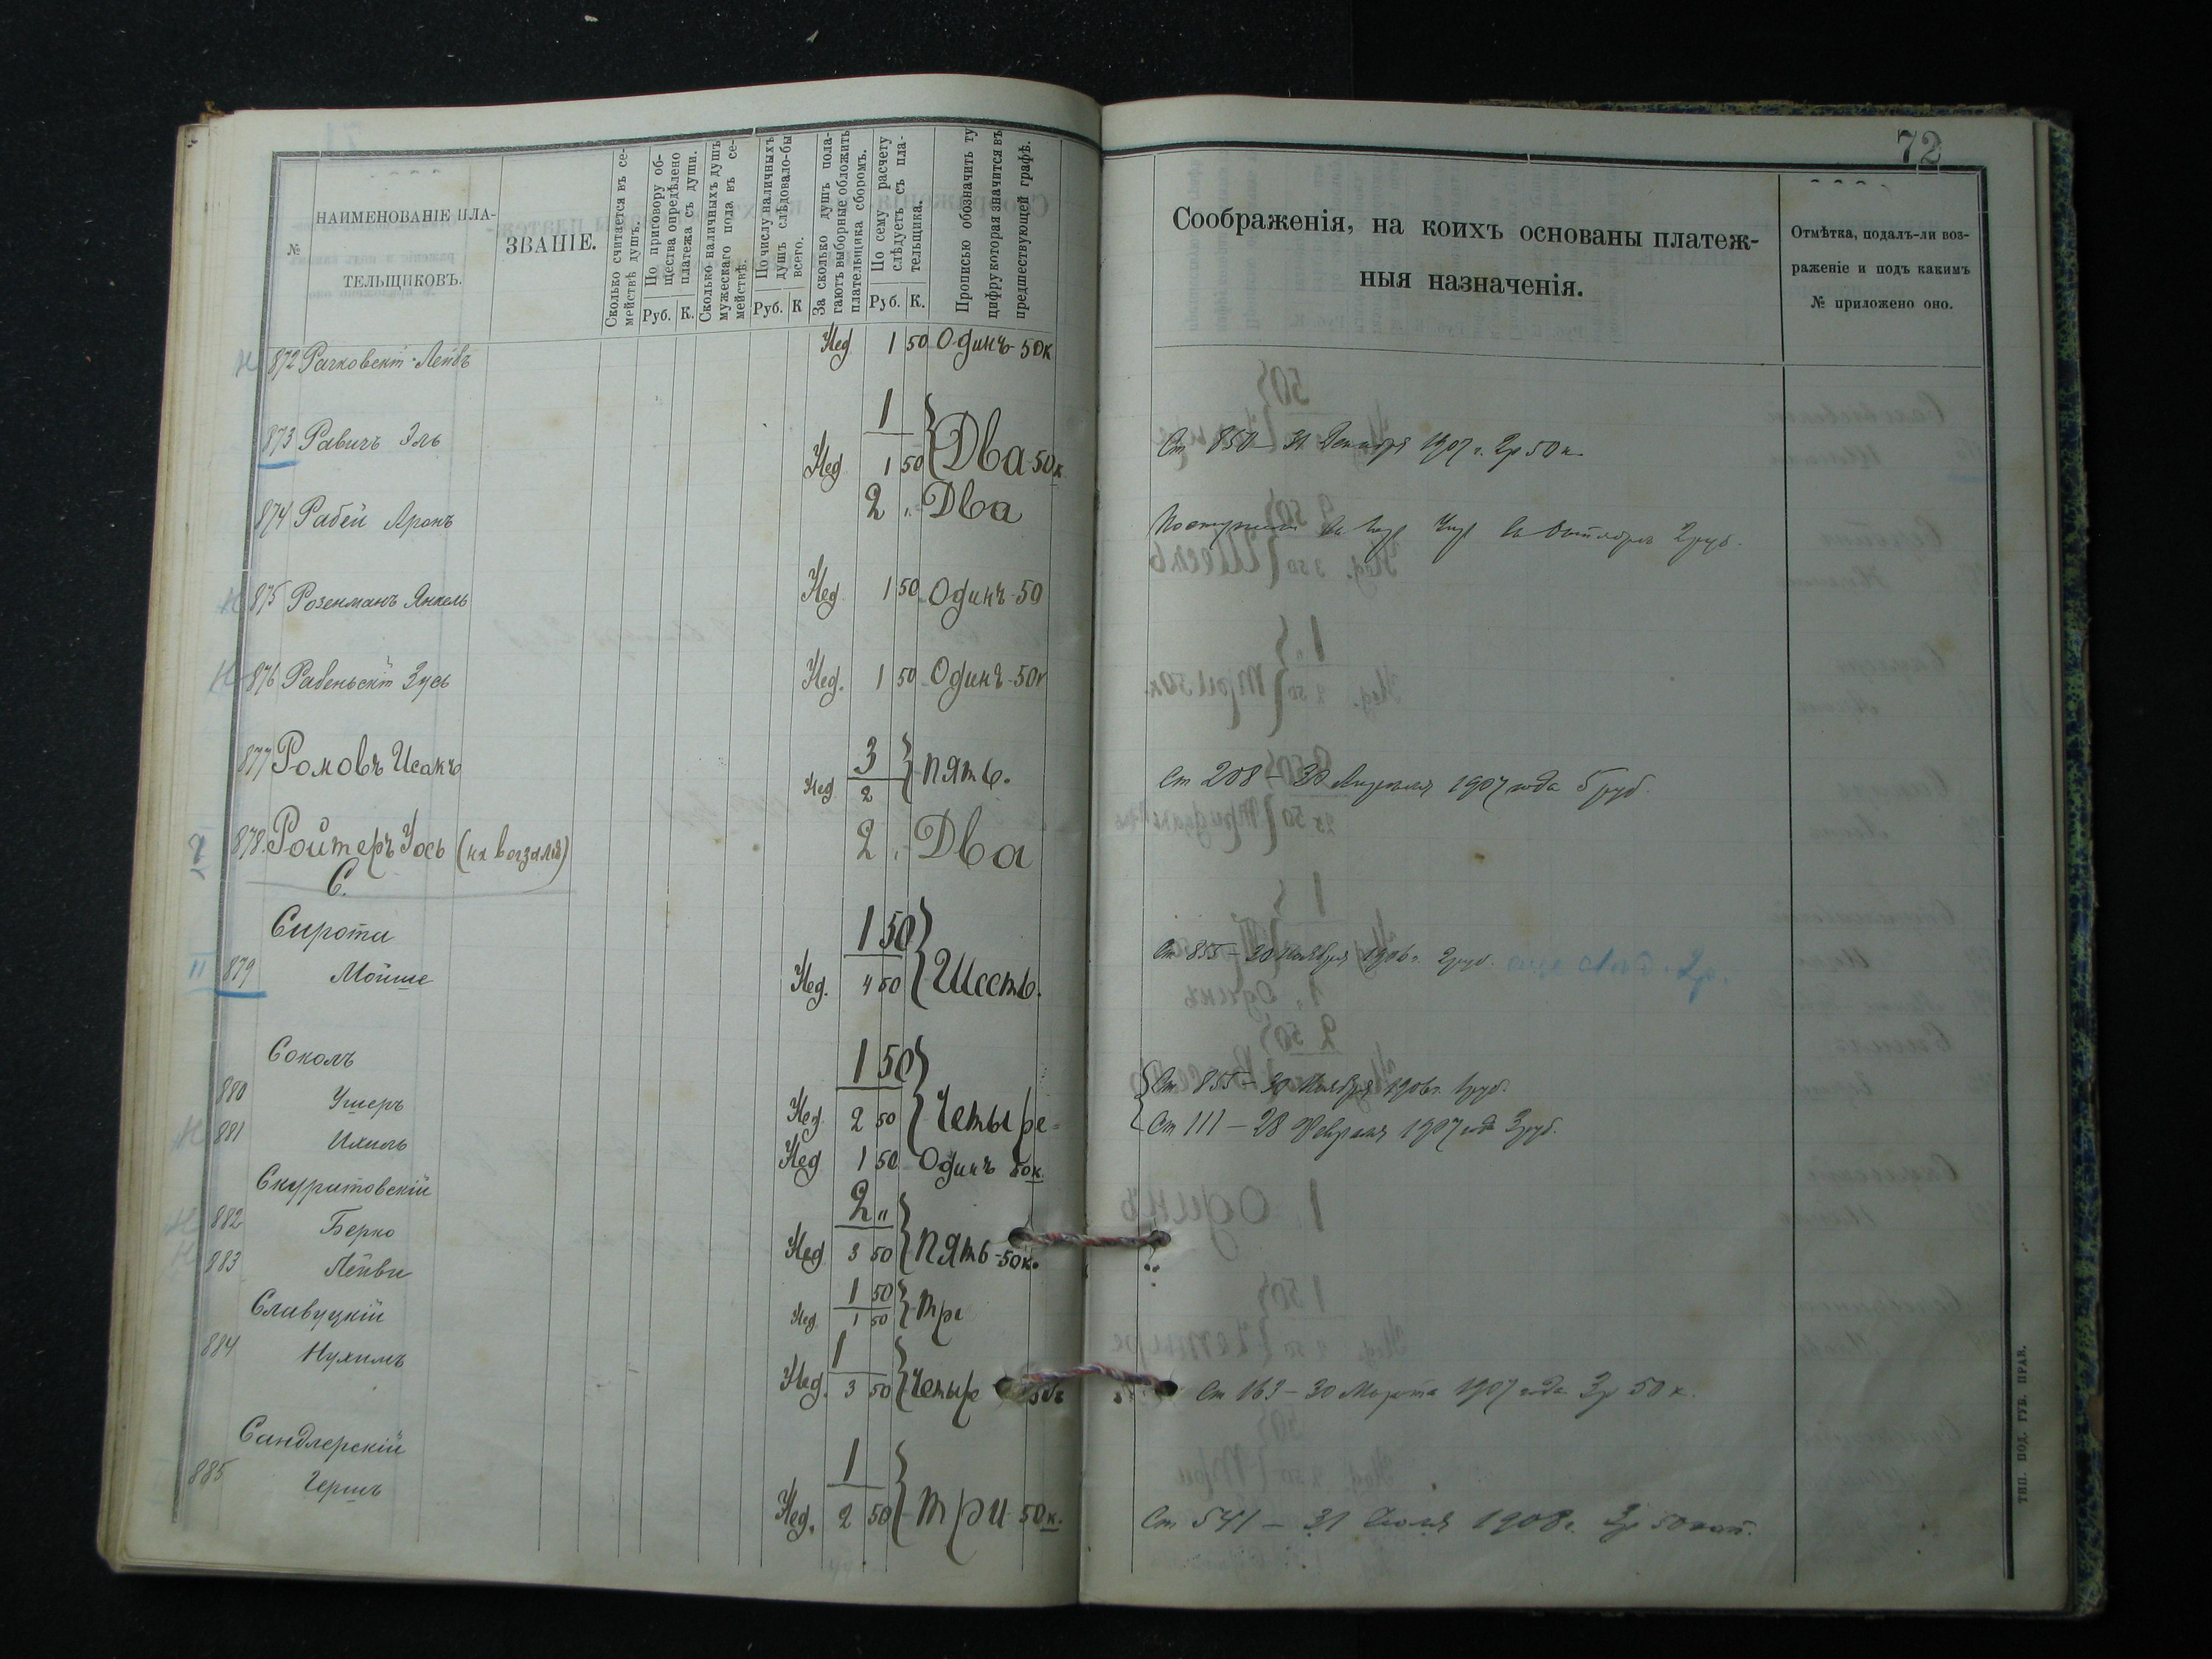 72
№
НАИМЕНОВАНІЕ ПЛА-
ТЕЛЬЩИКОВЪ.
ЗВАНІЕ.
Сколько считается въ се-
мействѣ душъ.
По приговору об-
щества опредѣлено
платежа съ души.
Руб. К.
Сколько наличныхъ душъ
мужескаго пола въ се-
мействѣ.
По числу наличныхъ
душъ слѣдовало-бы
всего.
Руб. К
За сколько душъ пола-
гаютъ выборные обложить
плательщика сборомъ.
По сему расчету
слѣдуетъ съ пла-
тельщика.
Руб. К.
Прописью обозначить ту
цифру которая значится въ
предшествующей графѣ.
Соображенія, на коихъ основаны платеж-
ныя назначенія.
Отмѣтка, подалъ-ли воз-
раженіе и подъ какимъ
№ приложено оно.
Н 872 Рачковскій Лейвъ Нед 1 50 Одинъ 50к
1
873 Равичъ Эль Нед 1 50 Два 50к Ст 850 – 31 Декабря 1907 г. 2р 50 к.
874 Рабей Аронъ 2 „ Два
2 руб.
Н 875 Розенманъ Янкель Нед 1 50 Одинъ 50
Н 876 Рабеньскій Зусь Нед. 1 50 Одинъ 50к
3
877 Ромовъ Исакъ Нед 2 Пять. Ст 208 – 30 Апреля 1907 года 5 руб.
878. Ройтеръ Іось (на вокзалѣ) 2 „ Два
С.
Сирота 1 50
879 Мойше Нед. 4 50 Шесть. Ст 855 – 30 Ноября 1906 г. 2 руб.
Соколъ 1 50
880 Ушеръ Нед 2 50 Четыре Ст 855 – 30 Ноября 1906 г. 1 руб.
Н 881 Ихиль Нед 1 50 Одинъ 50к. Ст 111 – 28 Февраля 1907 года 3 руб.
Скуратовскій 2 „
Н 882 Берко Нед 3 50 Пять 50к.
Н 883 Лейви 1 50
Нед 1 50 Три
Славуцкій 1
884 Нухимъ Нед. 3 50 Четыре 50к Ст 163 – 30 Марта 1907 года 3р 50 к.
Сандлерскій 1
885 Гершъ Нед. 2 50 Три 50к. Ст 541 – 31 Іюля 1908 г. 3р 50 коп.
ТИП. ПОД. ГУБ. ПРАВ.